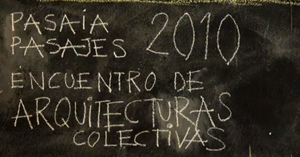 PASAIA
PASAJES 2010
ENCUENTRO DE
ARQUITECTURAS
COLECTIVAS